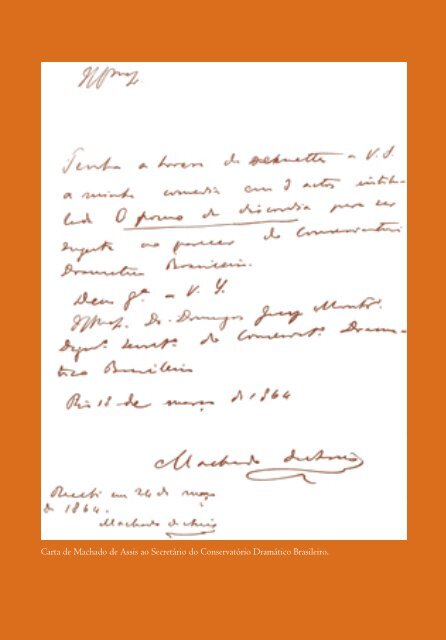 Tenho a honra de remetter a V. S.
a minha comedia em 3 actos intitu-
lada O pomo da discordia para ser
sugeita ao parecer do Conservatorio
Dramatico Brasileiro.
Deus g.e a V. S.
Dr. Domingos Jacy Montr.o
Dign.o secret.o do Conservat.o Drama-
tico Brasileiro
Rio 18 de março de 1864
Machado de Assis
Recebi em 24 de março
de 1864.
Machado de Assis
Carta de Machado de Assis ao Secretário do Conservatório Dramático Brasileiro.